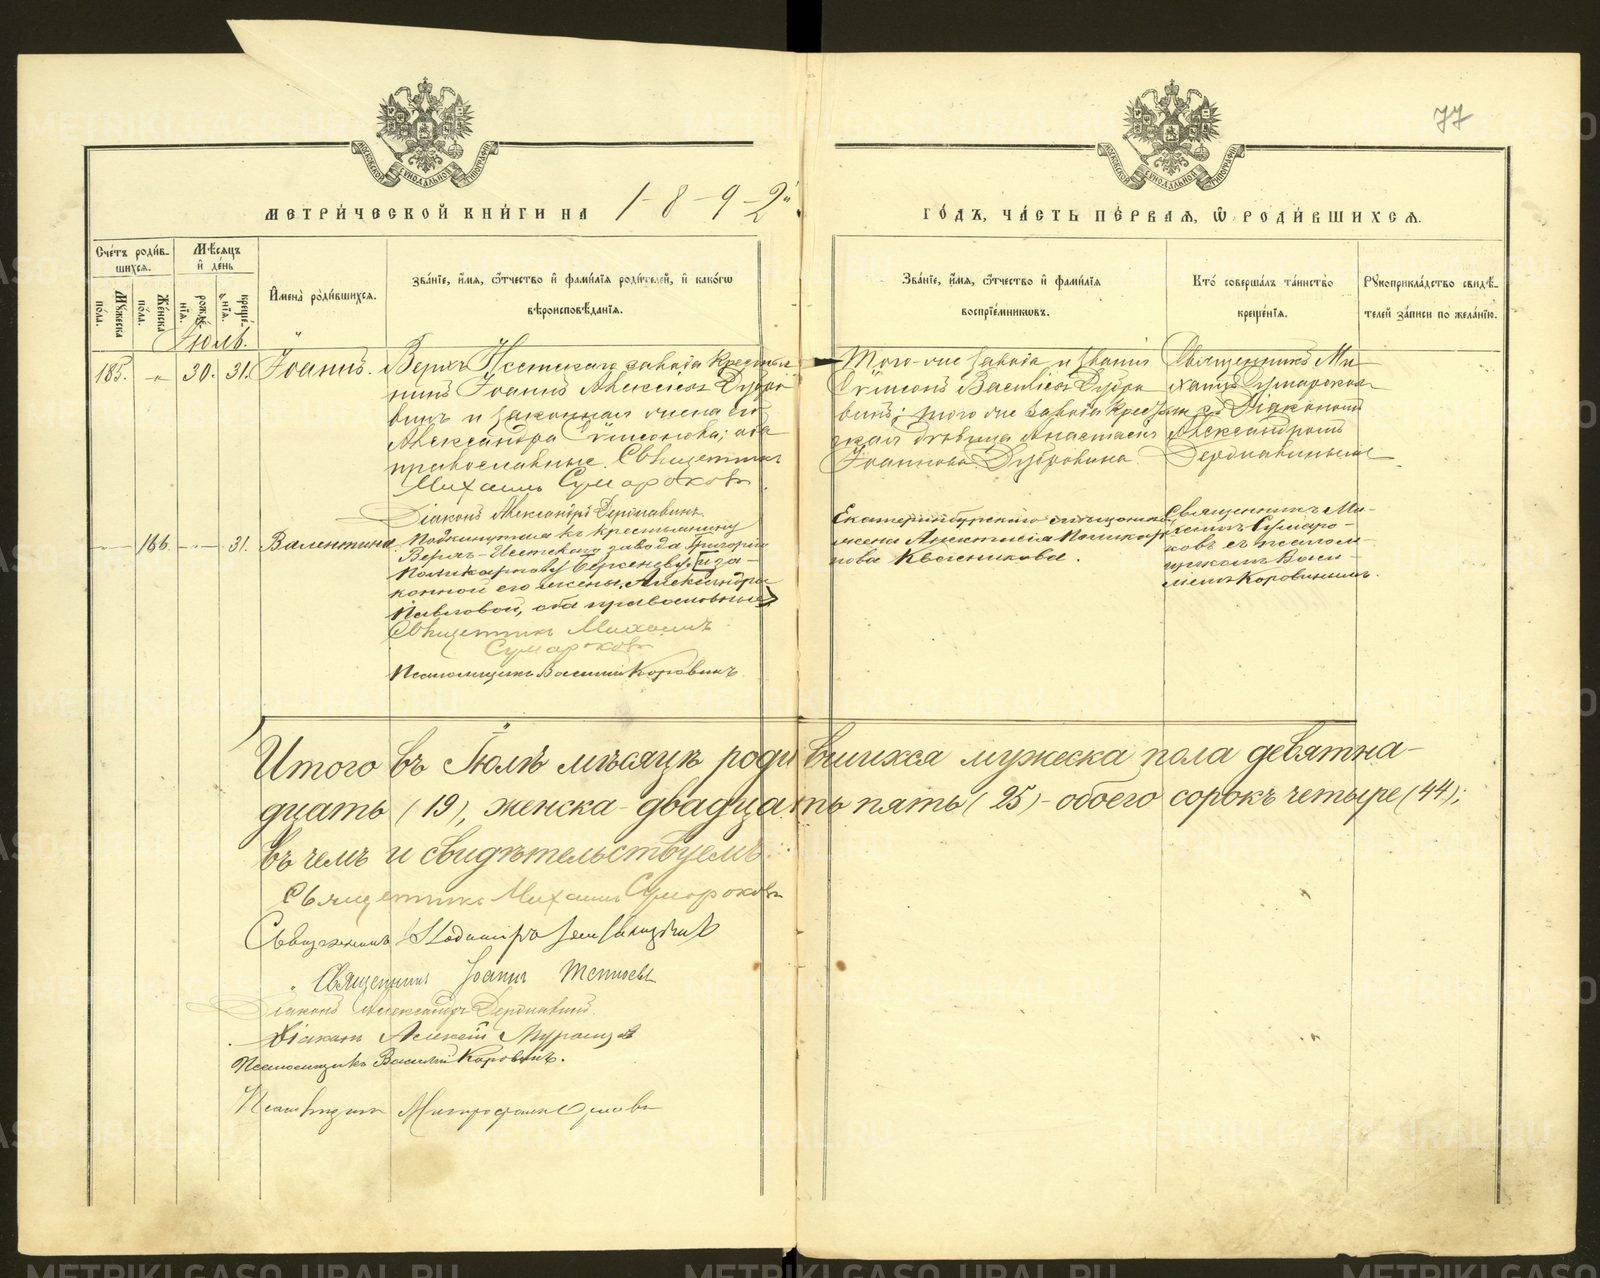 77
МОСКОВСКОЙ СѴНОДАЛЬНОЙ ТИПОГРАФІИ
МОСКОВСКОЙ СѴНОДАЛЬНОЙ ТИПОГРАФІИ
МЕТРИ́ЧЕСКОЙ КНИ́ГИ НА 1892
ГО́ДЪ, ЧА́СТЬ ПЕ́РВАЯ, Ѿ РОДИ́ВШИХСЯ.
Сче́тъ роди́вшихся.
Мѣ́сяцъ и҆ де́нь
Му́жеска по́ла.
Же́нска по́ла.
рожде́нія.
креще́нія.
И҆мена̀ роди́вшихся.
Зва́нїе, и҆́мя, ѻ҆́тчество и҆ фами́лїя роди́телей, и҆ како́гѡ вѣроисповѣ́данїя.
Зва́нїе, и҆́мя, ѻ҆́тчество и҆ фами́лїя воспрїе́мниковъ.
Кто̀ соверша́лъ та́инство креще́нїя.
Рꙋкоприкла́дство свидѣ́телей за́писи по жела́нїю.
Іюль.
185. -„- 30. 31. Іоаннъ.
Верхъ Исетскаго завода крестья
нинъ Іоаннъ Алексіевъ Дубро
винъ и законная жена его
Александра Сѵмеонова; оба
православные. Священникъ
Михаилъ Сумароковъ.
Діаконъ Александръ Державинъ
Того-же завода и званія
Сѵмеонъ Васильевъ Дубро
винъ; того же завода крестьян
ская дѣвица Анастасія
Іоаннова Дубровина
Священникъ Ми-
хаилъ Сумароков
съ Діакономъ
Александромъ
Державинымъ
186. -„- 31. Валентина.
Подкинутая къ крестьянину
Верхъ-Исетскаго завода Григорію
Поликарпову Сергѣеву, [и за-
конной его жены, Александры
Павловой, оба православные]
Священникъ Михаилъ
Сумароковъ
Псаломщикъ Василій Коровинъ.
Екатеринбургскаго мѣщанина
жена Анастасія Поликар
пова Квасникова.
Священникъ Ми-
хаилъ Сумаро-
ковъ съ псалом-
щикомъ Васи-
ліемъ Коровинымъ.
Итого въ Іюлѣ мѣсяцѣ родившихся мужеска пола девятна-
дцать (19), женска-двадцать пять (25)-обоего сорокъ четыре (44);
въ чемъ и свидѣтельствуемъ:
Священникъ Михаилъ Сумароковъ
Священникъ Владиміръ
Священникъ Іоаннъ
Діаконъ Александръ Державинъ.
Діаконъ Алексѣй
Псаломщикъ Василій Коровинъ.
Псаломщикъ Митрофанъ Орловъ
METRIKI.GASO-URAL.RU